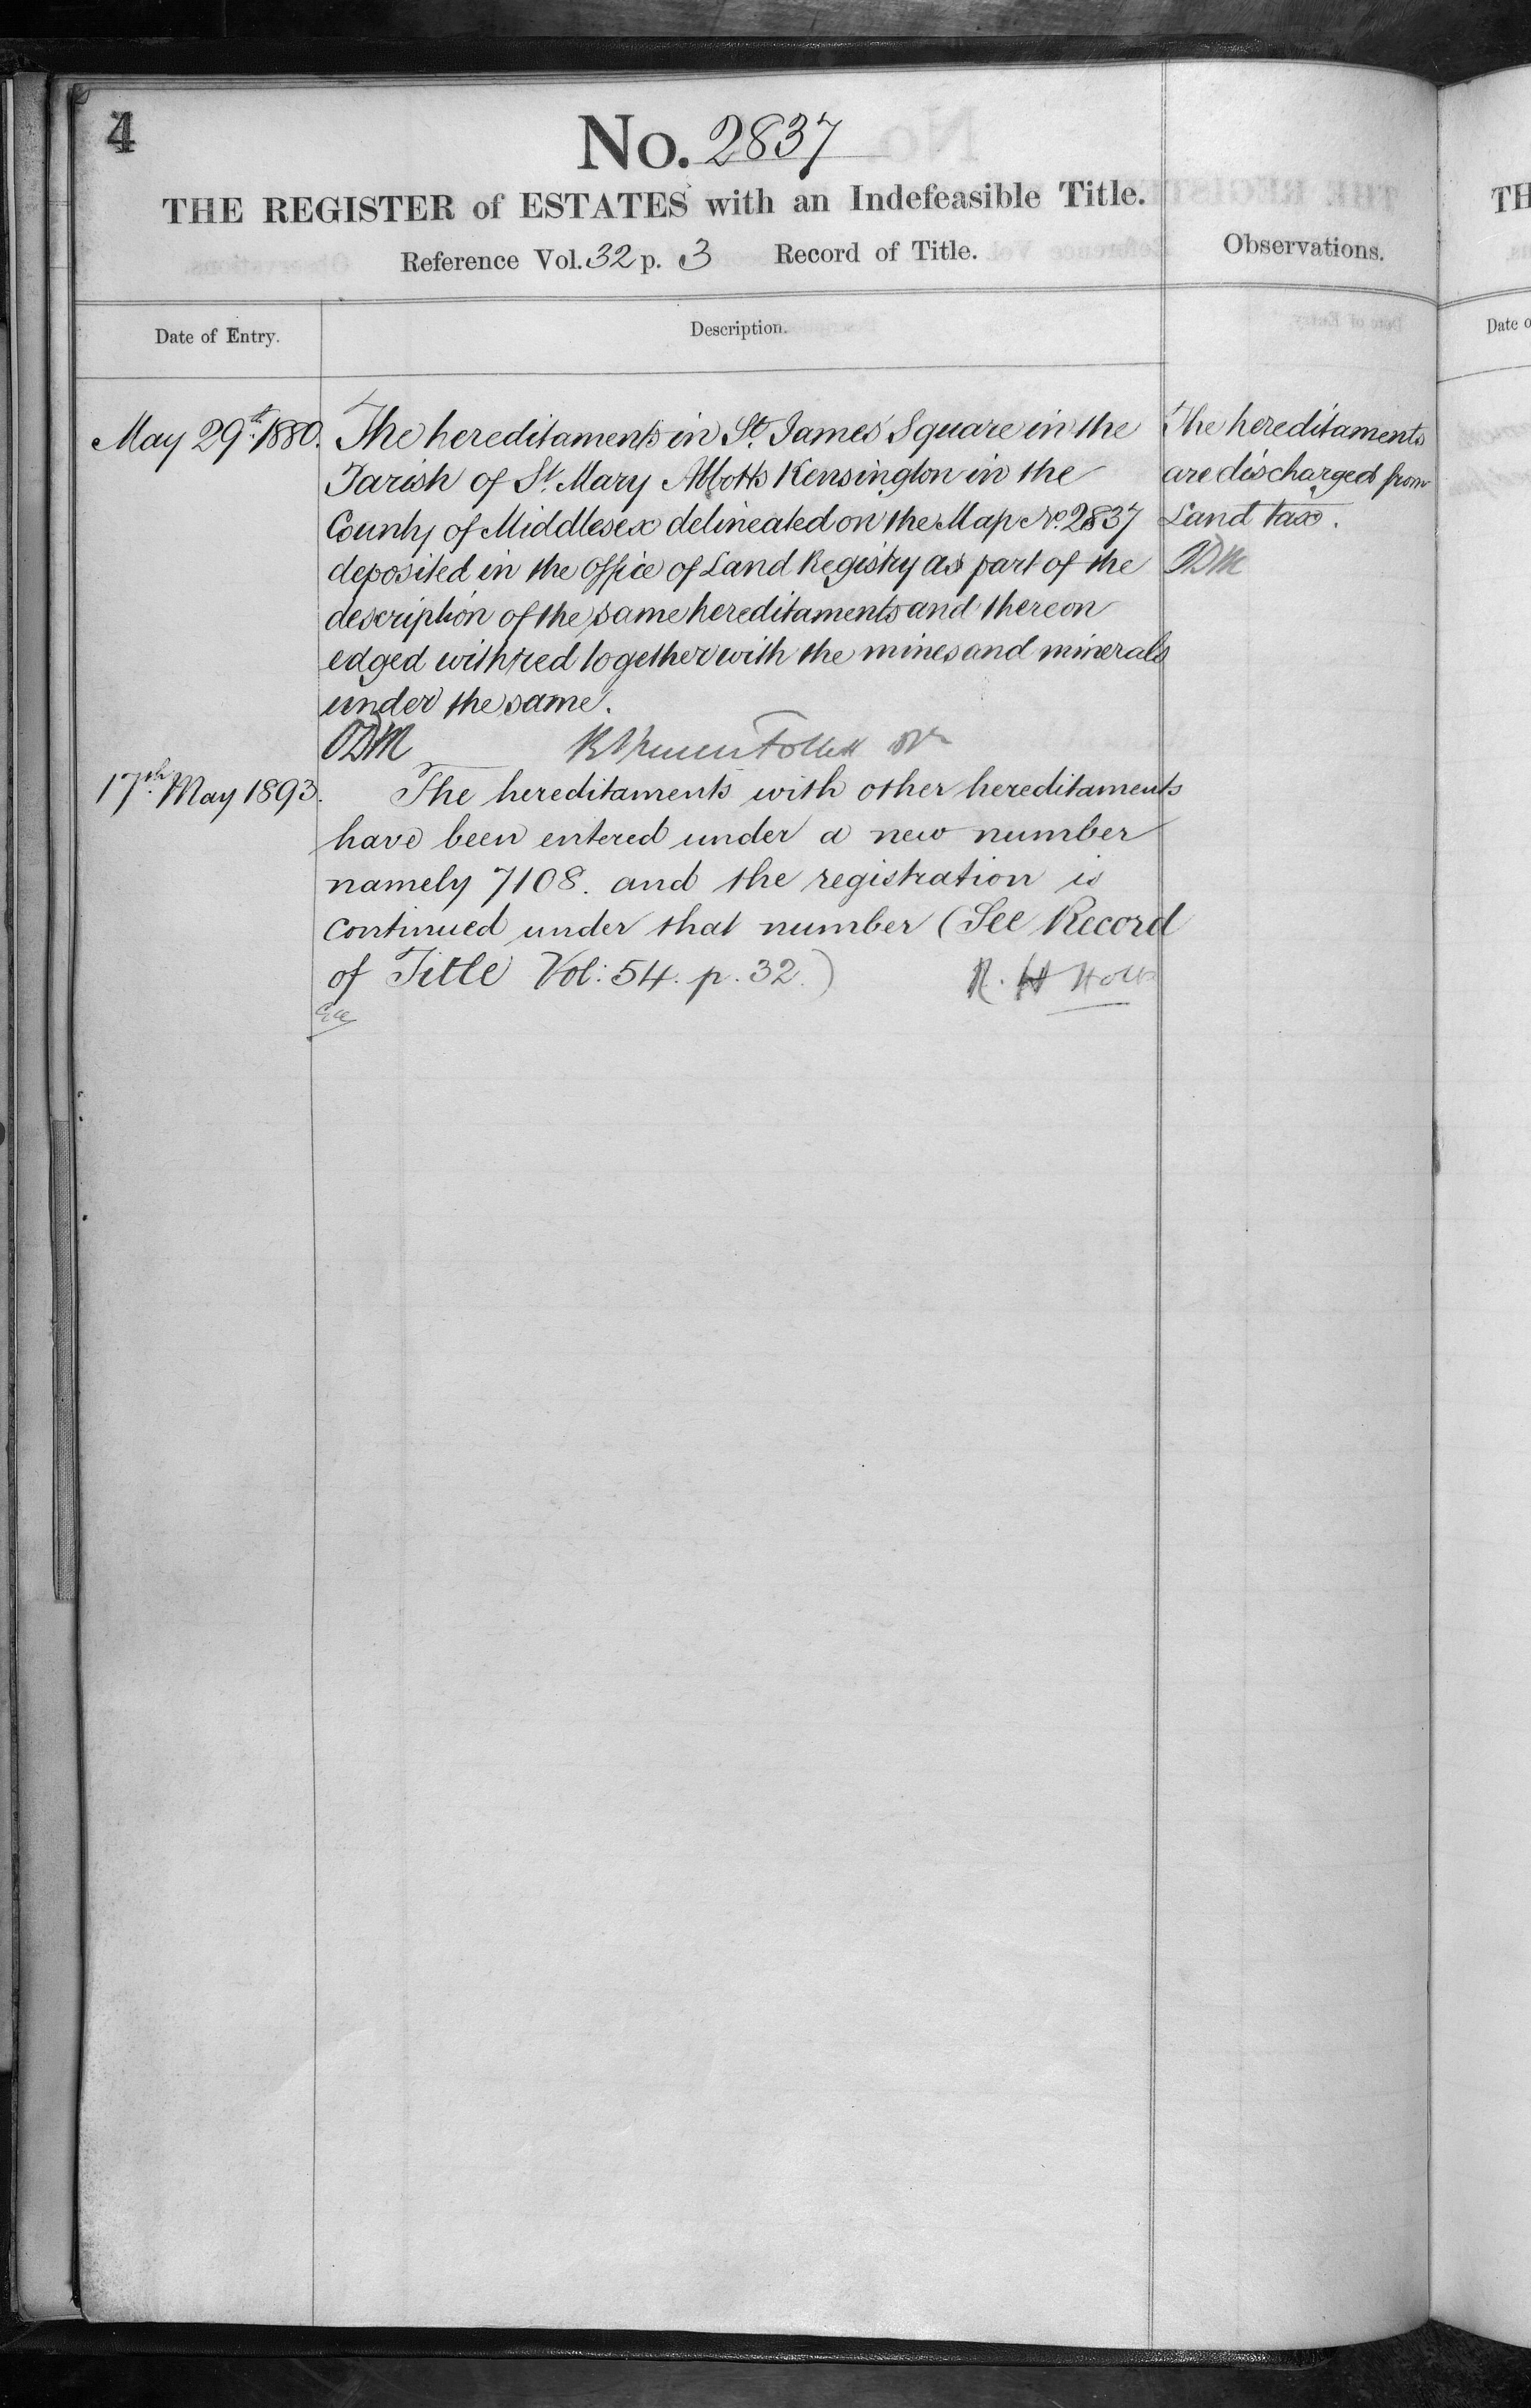 4
No. 2837
THE REGISTER of ESTATES with an Indefeasible Title.
Reference Vol. 32 p. 3 Record of Title.
Observations.
Date of Entry.
Description.
May 29th 1880.
The hereditaments in St. James' Square in the
Parish of St. Mary Abbotts Kensington in the
County of Middlesex delineated on the Map No. 2837
deposited in the Office of Land Registry as part of the
description of the same hereditaments and thereon
edged with red together with the mines and minerals
under the same.
ODM
The hereditaments
are discharged from
Land tax.
ODM
17th May 1893.
The hereditaments with other hereditaments
have been entered under a new number
namely 7108. and the registration is
continued under that number (See Record
of Title Vol: 54. p. 32.)
R. H Holt
TH
Date o